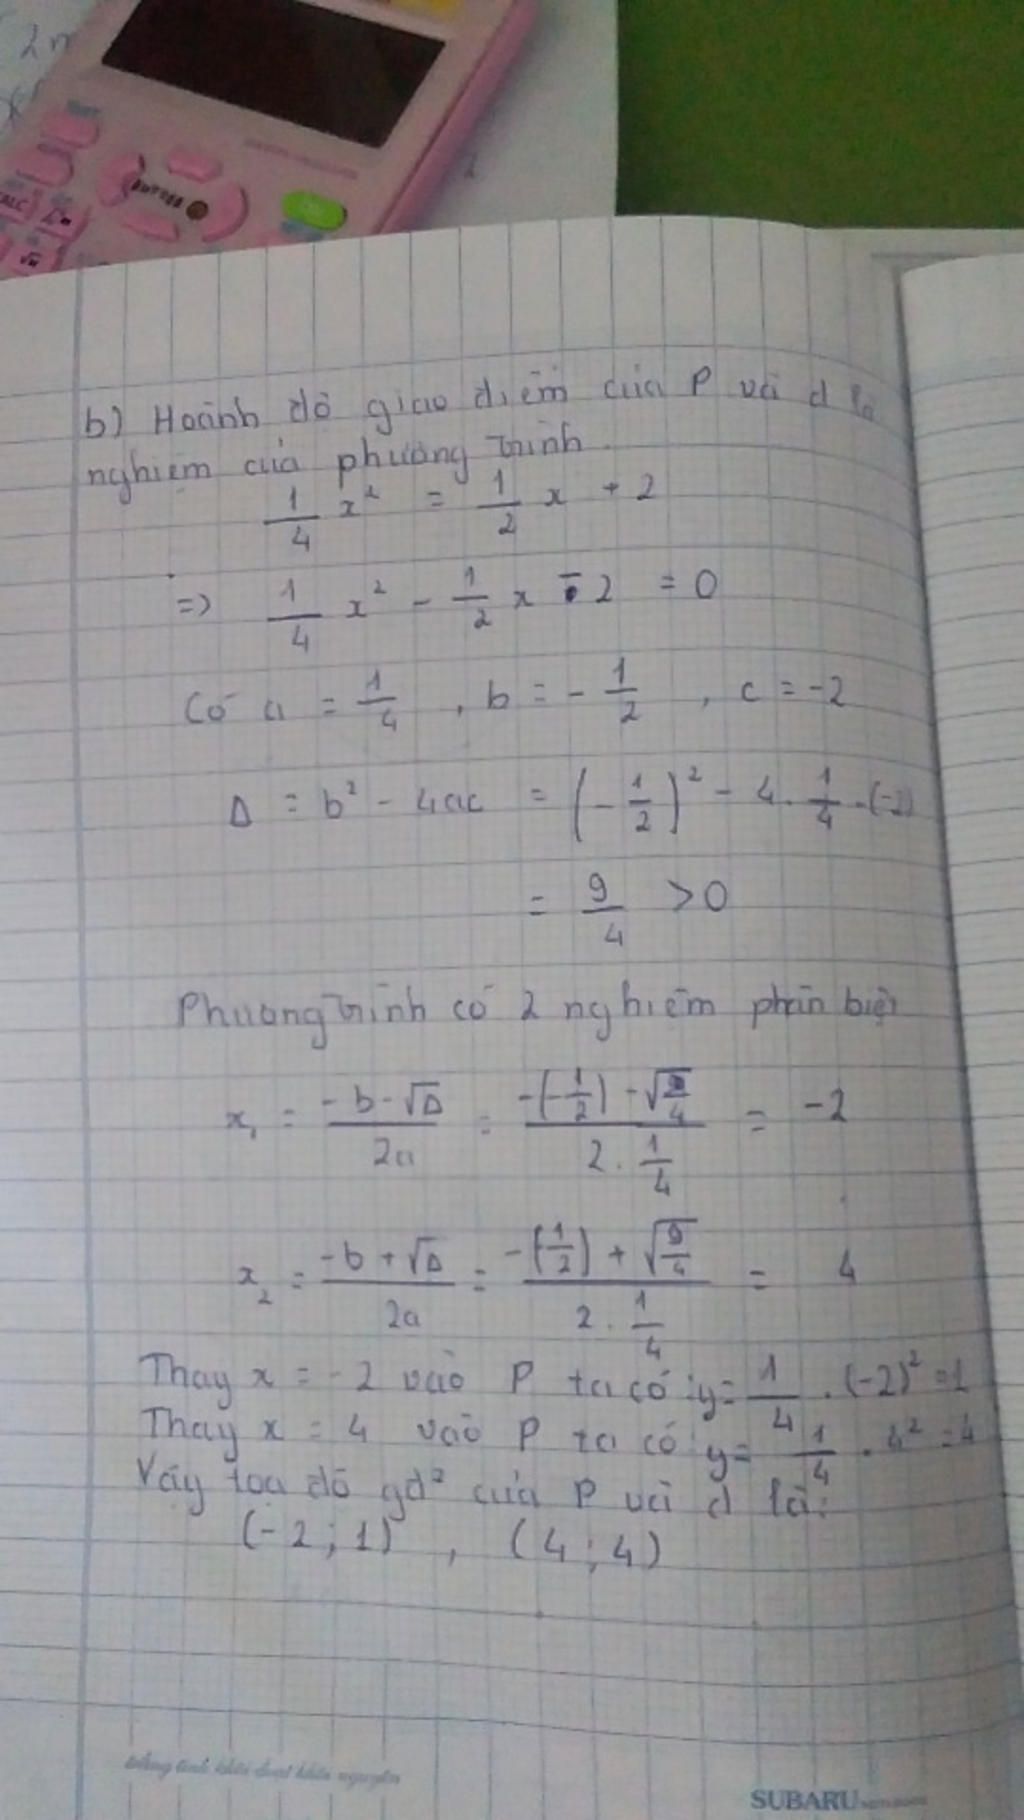 b) Hoành độ giao điểm của P và d là
nghiệm của phương trình
1/4 x² = 1/2 x + 2
=> 1/4 x² - 1/2 x - 2 = 0
Có a = 1/4 , b = - 1/2 , c = -2
Δ = b² - 4ac = (- 1/2)² - 4 . 1/4 . (-2)
= 9/4 > 0
Phương trình có 2 nghiệm phân biệt
x₁ = (-b - √Δ)/2a = (-(-1/2) - √(9/4))/(2 . 1/4) = -2
x₂ = (-b + √Δ)/2a = (-(-1/2) + √(9/4))/(2 . 1/4) = 4
Thay x = -2 vào P ta có : y = 1/4 . (-2)² = 1
Thay x = 4 vào P ta có : y = 1/4 . 4² = 4
Vậy tọa độ gđ² của P và d là :
(-2 ; 1) , (4 ; 4)
SUBARU